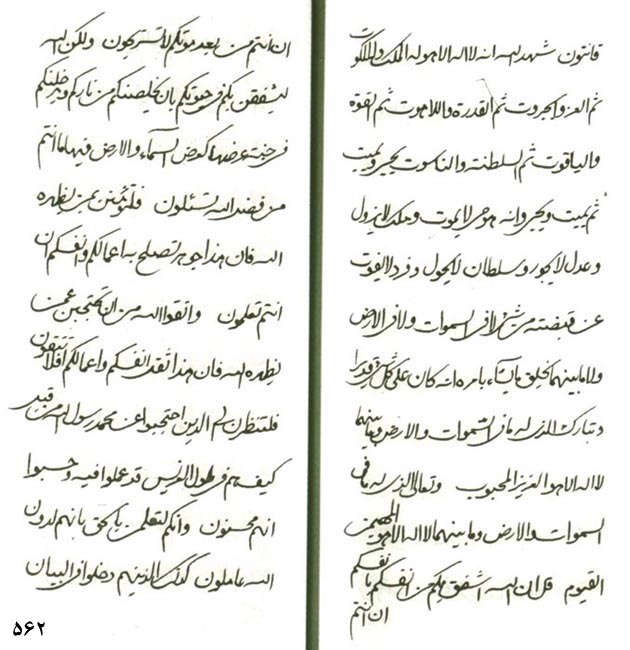 قانتون شهد الله انه لا اله الا هو له الملك والملكوت
ثم العز والجبروت ثم القدرة واللاهوت ثم القوة
والياقوت ثم السلطنة والناسوت يحيي ويميت
ثم يميت ويحيي وانه هو حي لا يموت وملك لا يزول
وعدل لا يجور وسلطان لا يحول وفرد لا يفوت
عن قبضته من شئ لا في السموات ولا في الارض
ولا ما بينهما يخلق ما يشاء بامره انه كان على كل شئ قديرا
وتبارك الذي له ما في السموات والارض وما بينهما
لا اله الا هو العزيز المحبوب وتعالى الذي له ما في
السموات والارض وما بينهما لا اله الا هو المهيمن
القيوم قل ان الله اشفق بكم عن انفسكم بانفسكم
ان انتم
ان انتم من بعد موتكم لا تستركون ولكن الله
ليشفقن بكم في حيوتكم بان يخلصنكم من ناركم ويدخلنكم
في جنة عرضها كعرض السماء والارض فيها ما انتم
من فضل الله تسئلون فلتؤمنن بمن يظهره
الله فان هذا جوهر تصلح به اعمالكم وانفسكم ان
انتم تعلمون واتقوا الله من ان تحتجبن عمن
يظهره الله فان هذا تفسد انفسكم واعمالكم افلا تتقون
فلتنظرن الى الذين احتجبوا عن محمد رسول الله من قبل
كيف هم في طول الف سنين قد عملوا فيه وحسبوا
انهم محسنون وانكم لتعلمن بالحق بانهم لدون
الله عاملون كذلك الذينهم دخلوا في البيان
۵۶۲